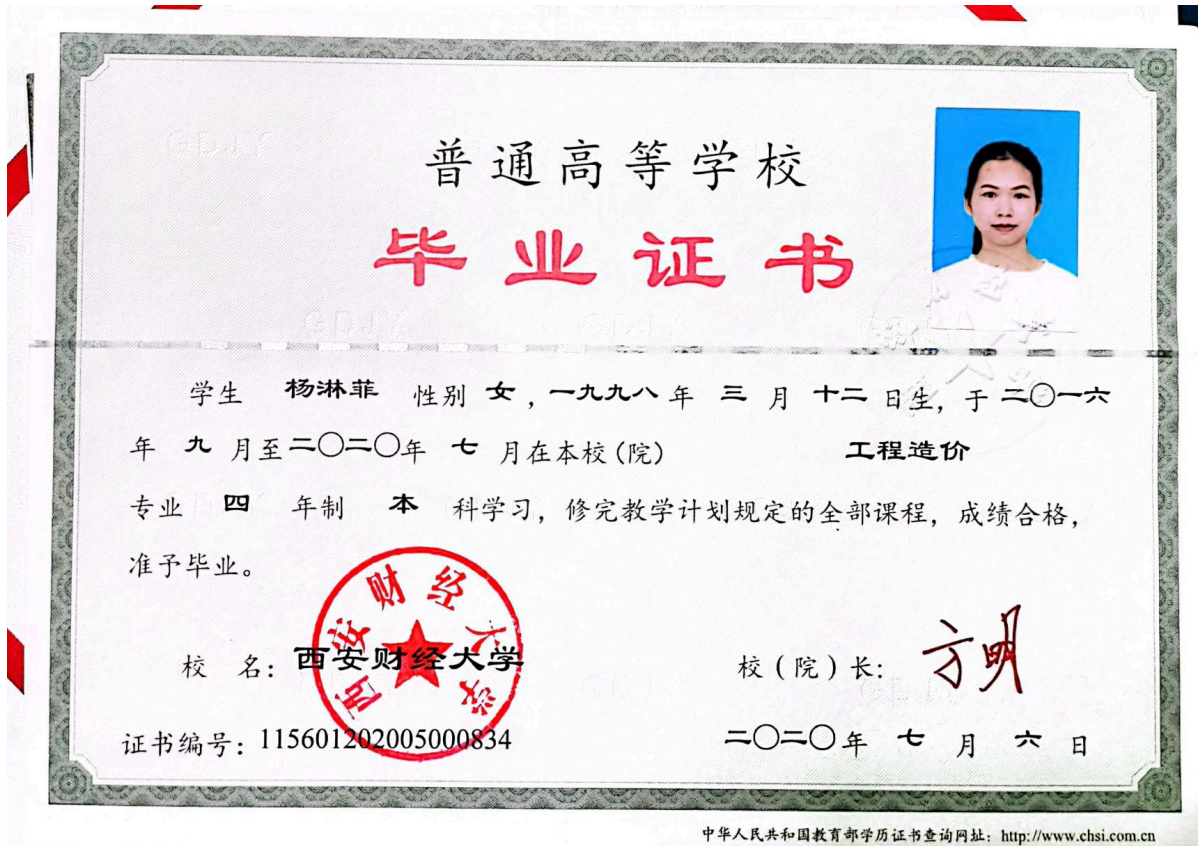 普通高等学校
毕业证书
学生 杨淋菲 性别 女，一九九八年 三 月 十二 日生，于 二〇一六
年 九 月至二〇二〇年 七 月在本校(院) 工程造价
专业 四 年制 本 科学习，修完教学计划规定的全部课程，成绩合格，
准予毕业。
西安财经大学
校 名：西安财经大学
校（院）长：方明
证书编号：115601202005000834
二〇二〇年 七 月 六 日
中华人民共和国教育部学历证书查询网址：http://www.chsi.com.cn